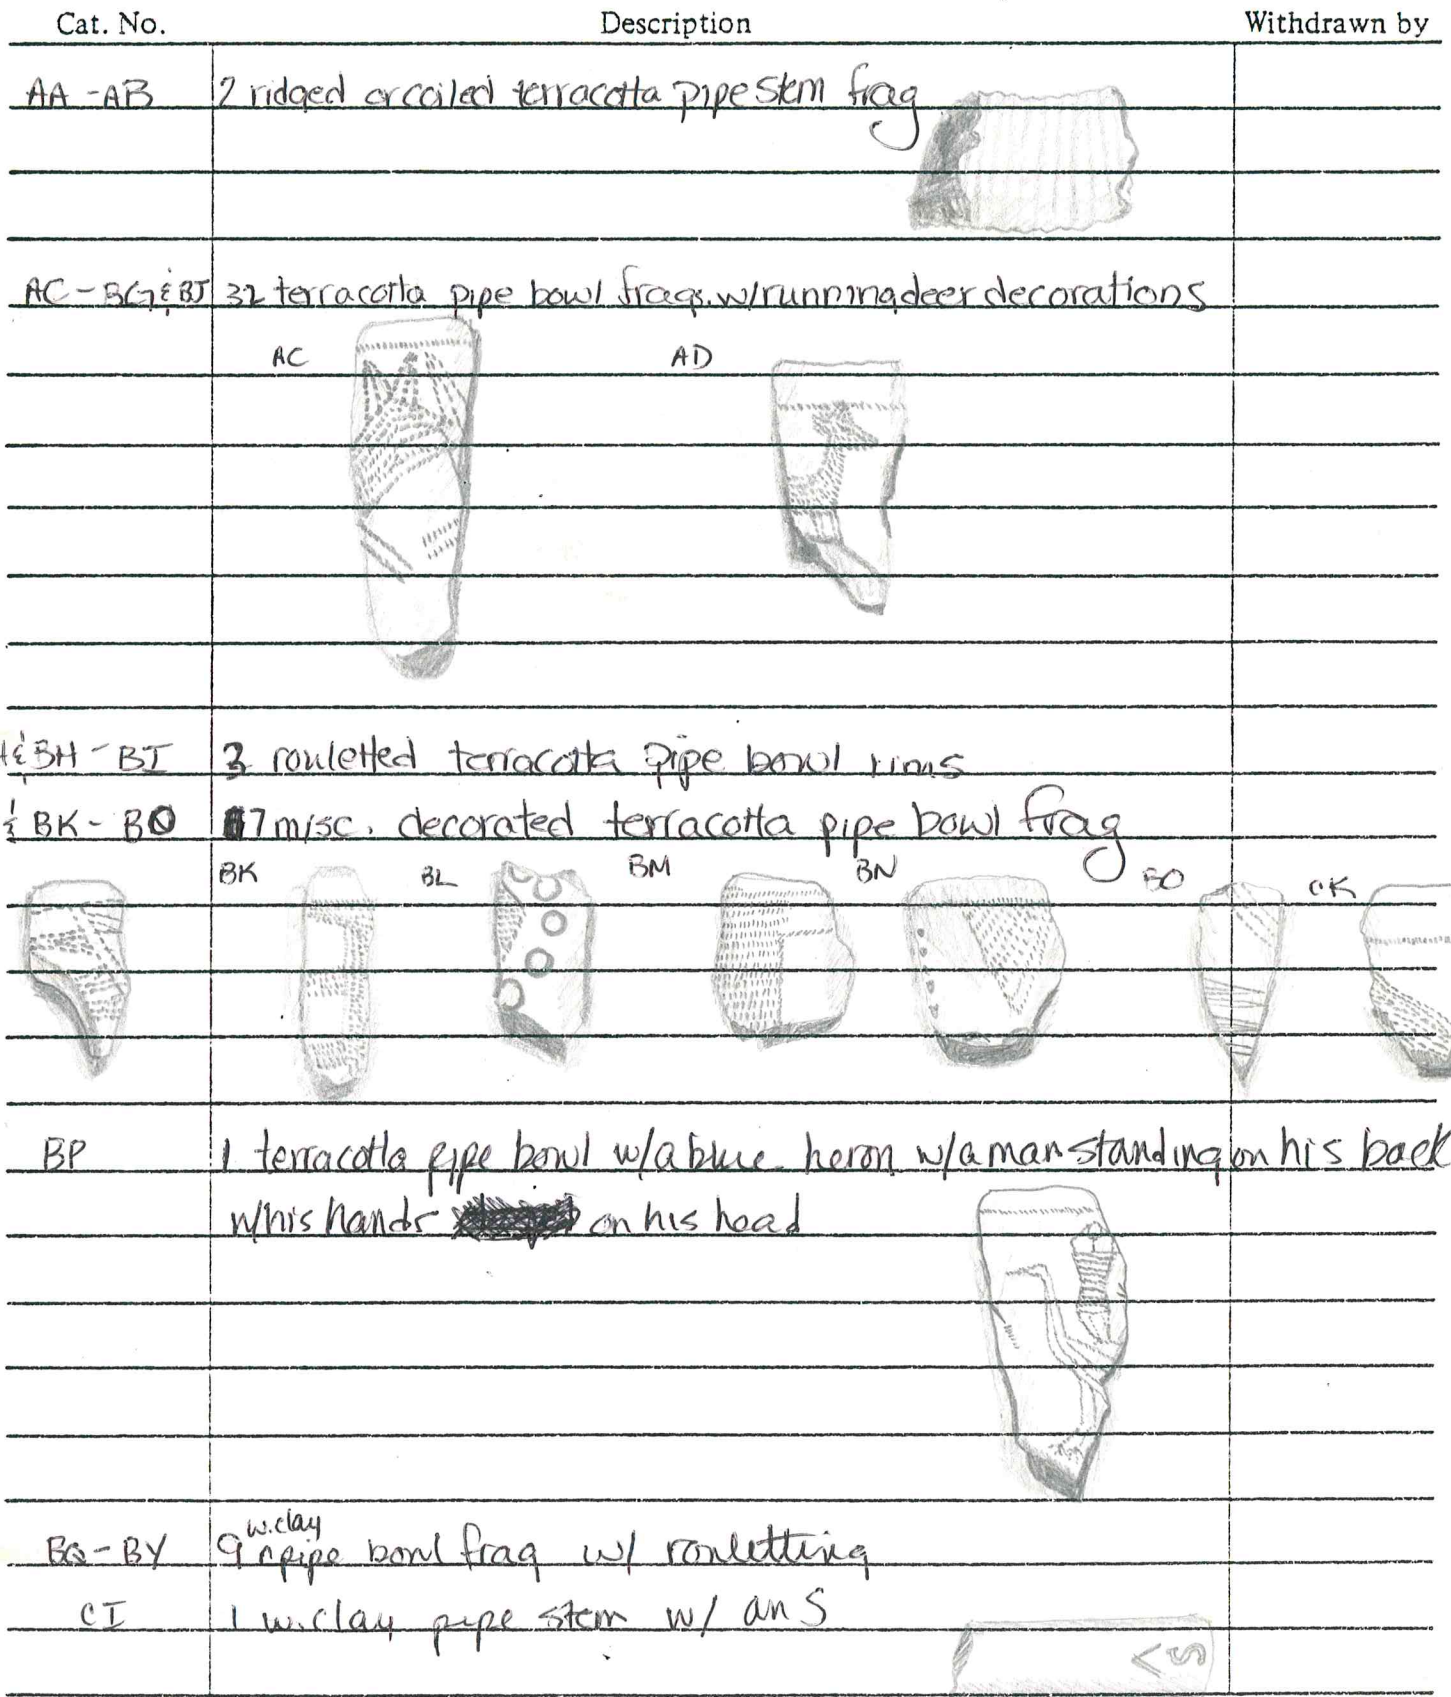 Cat. No. Description Withdrawn by
AA - AB 2 ridged or coiled terracotta pipe stem frag
AC - BG & BJ 32 terracotta pipe bowl frags. w/running deer decorations
AC AD
& BH - BI 3 rouletted terracotta pipe bowl rims
& BK - BO 7 misc. decorated terracotta pipe bowl frag
BK BL BM BN BO CK
BP 1 terracotta pipe bowl w/a blue heron w/a man standing on his back
w/his hands on his head
w.clay
BQ - BY 9 ^ pipe bowl frag w/ rouletting
CI 1 w.clay pipe stem w/ an S
<S